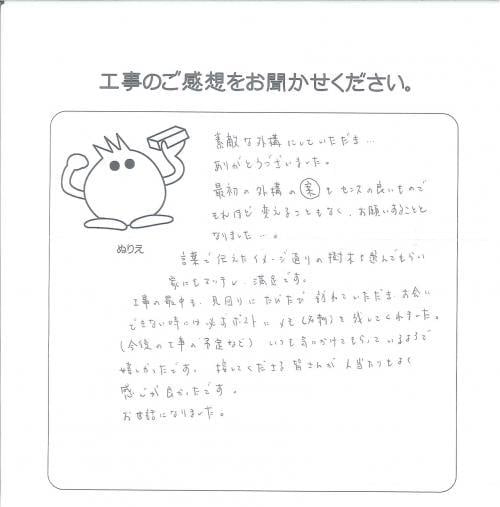 工事のご感想をお聞かせください。
素敵な外構にしていただき…
ありがとうございました。
最初の外構の案もセンスの良いもので
それほど変えることもなく、お願いすることと
なりました…。
ぬりえ
言葉で伝えたイメージ通りの樹木を選んでもらい
家にもマッチし、満足です。
工事の最中も、見回りにたびたび訪れていただき、お会い
できない時には必ずポストにメモ(名刺)を残してくれました。
(今後の工事の予定など) いつも気にかけてもらっているようで
嬉しかったです。接してくださる皆さんが人当たりもよく
感じが良かったです。
お世話になりました。